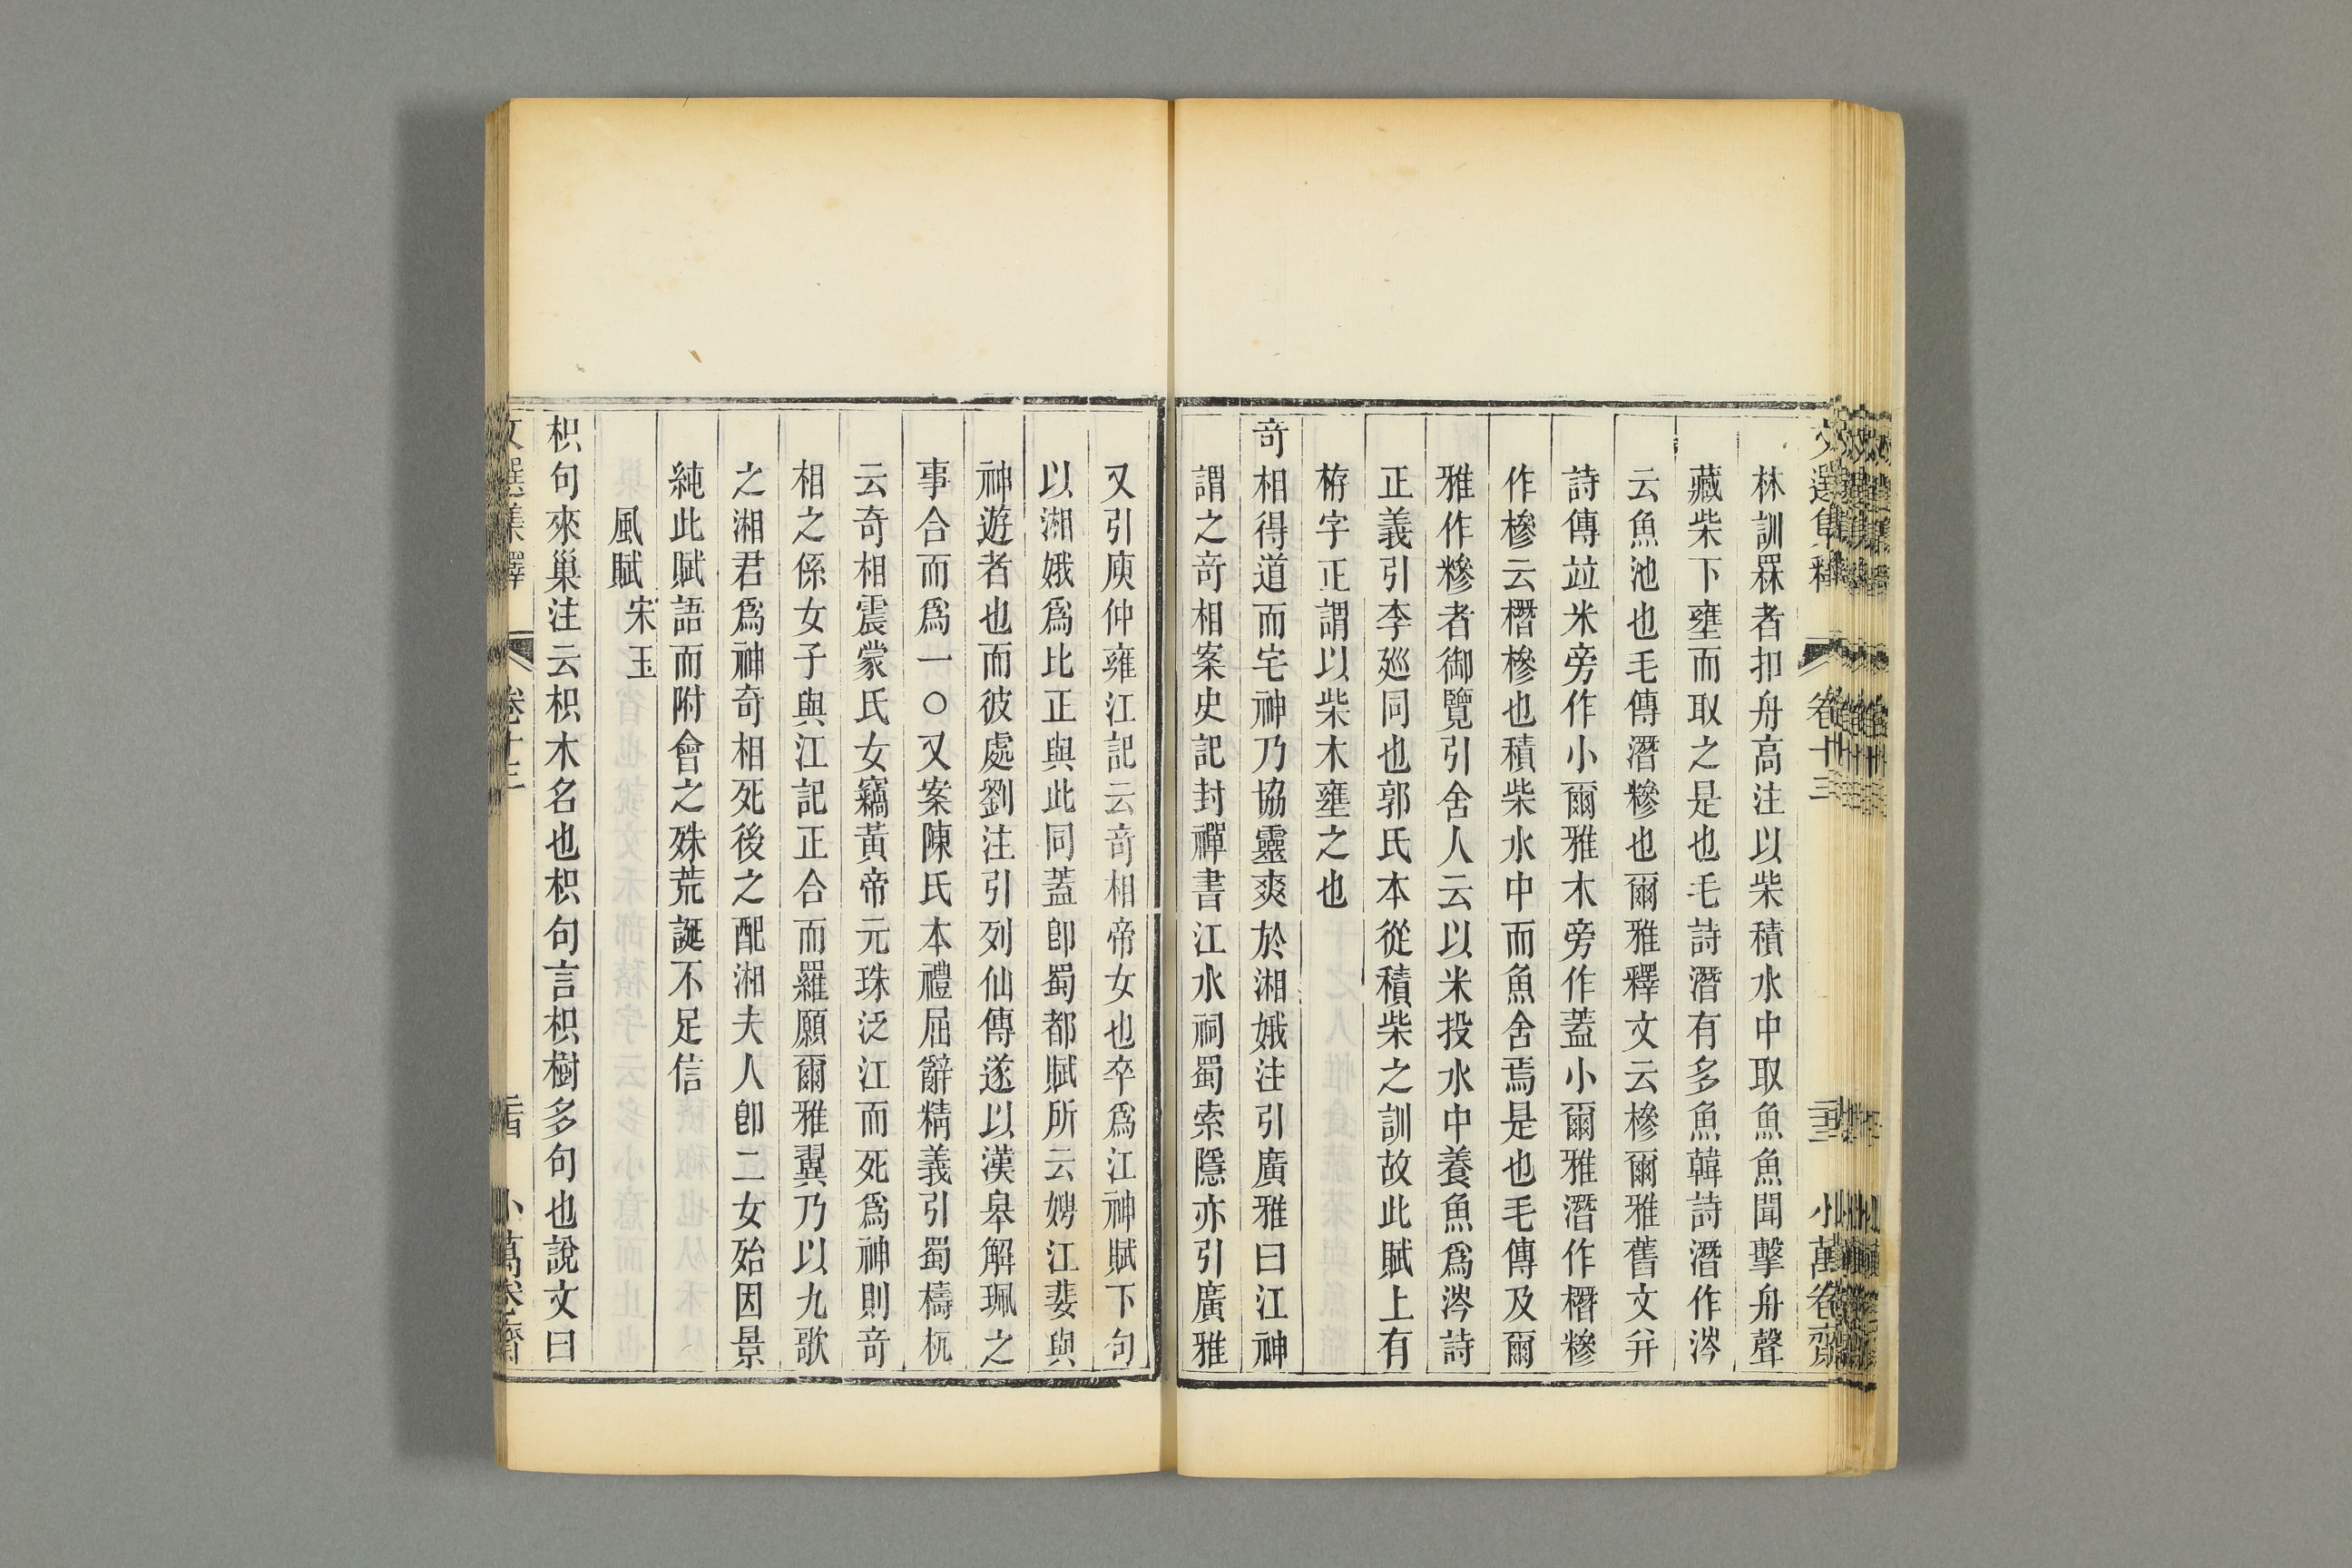 林訓罧者扣舟高注以柴積水中取魚魚聞擊舟聲
藏柴下壅而取之是也毛詩潛有多魚韓詩潛作涔
云魚池也毛傳潛糝也爾雅釋文云槮爾雅舊文并
詩傳竝米旁作小爾雅木旁作蓋小爾雅潛作橬糝
作槮云橬槮也積柴水中而魚舍焉是也毛傳及爾
雅作糝者御覽引舍人云以米投水中養魚爲涔詩
正義引李廵同也郭氏本從積柴之訓故此賦上有
栫字正謂以柴木壅之也
奇相得道而宅神乃協靈爽於湘娥注引廣雅曰江神
謂之奇相案史記封禪書江水祠蜀索隱亦引廣雅
又引庾仲雍江記云奇相帝女也卒爲江神賦下句
以湘娥爲比正與此同蓋卽蜀都賦所云娉江婓與
神遊者也而彼處劉注引列仙傳遂以漢皋解珮之
事合而爲一〇又案陳氏本禮屈辭精義引蜀檮杌
云奇相震蒙氏女竊黃帝元珠泛江而死爲神則奇
相之係女子與江記正合而羅願爾雅翼乃以九歌
之湘君爲神奇相死後之配湘夫人卽二女殆因景
純此賦語而附會之殊荒誕不足信
風賦 宋玉
枳句來巢注云枳木名也枳句言枳樹多句也說文曰
文選集釋 卷十三 小萬卷齋